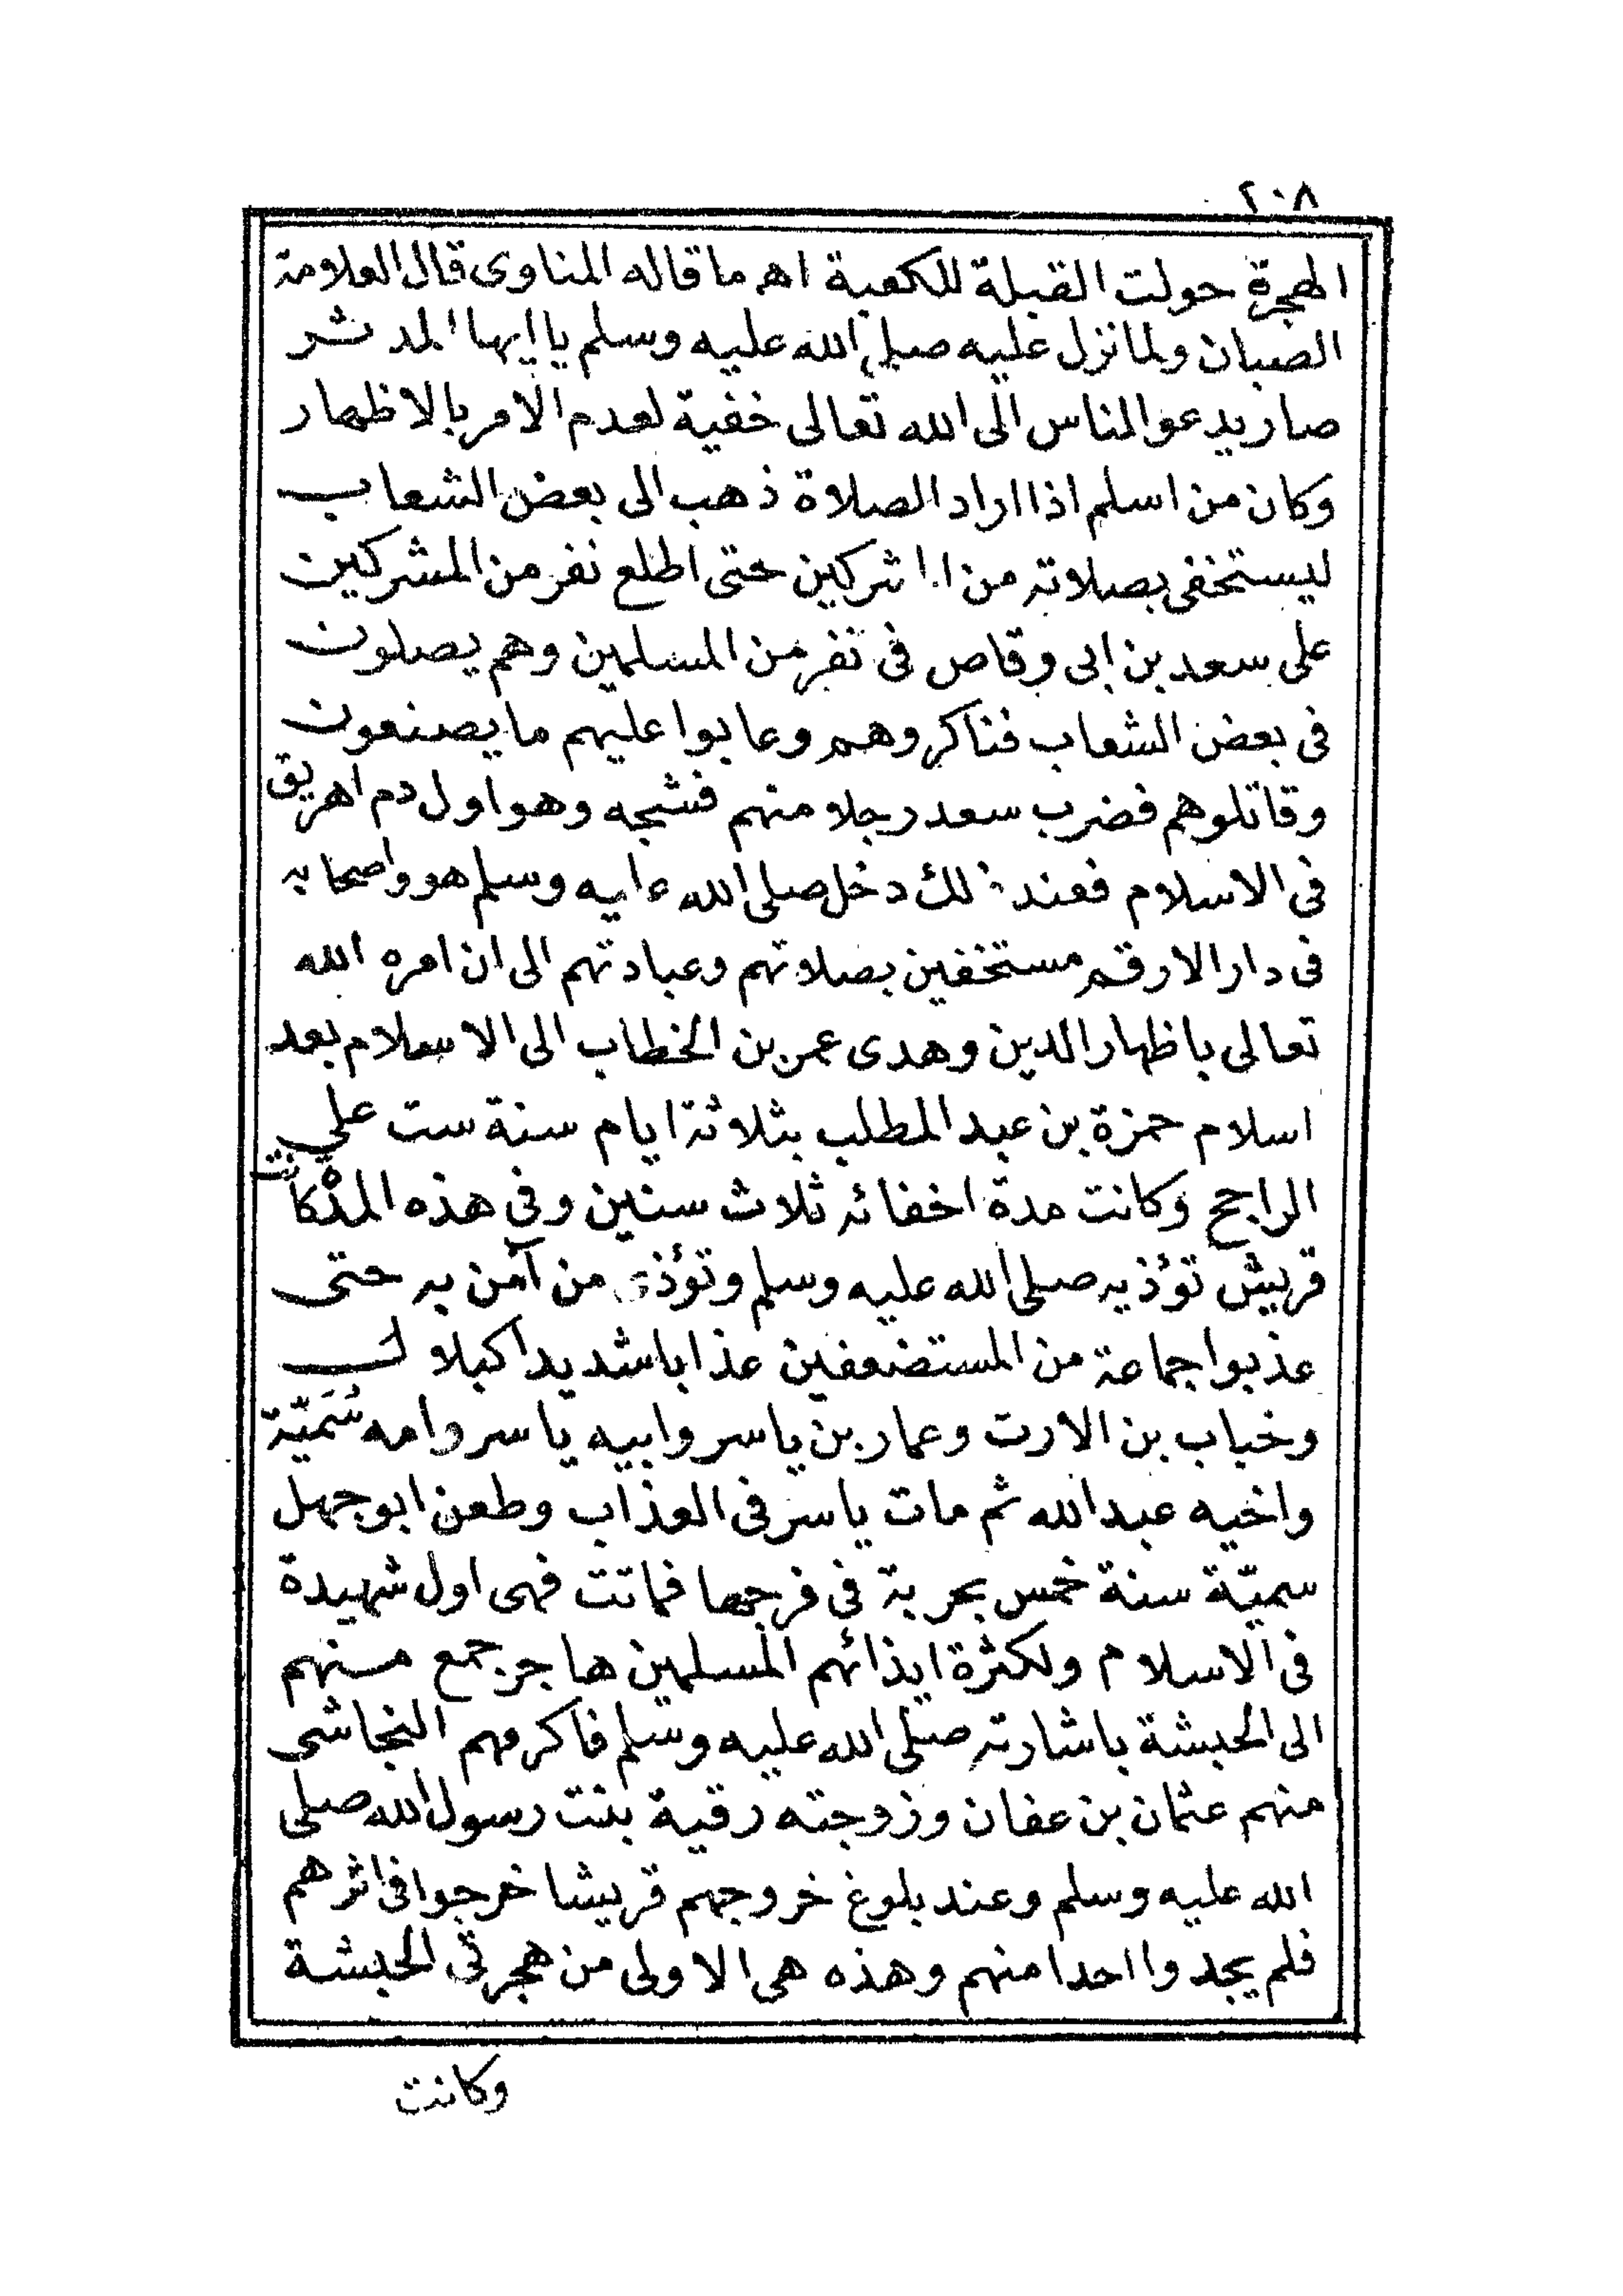 ٢٠٨
الهجرة حولت القبلة للكعبة اهـ ما قاله المناوى قال العلامة
الصبان ولما نزل عليه صلى الله عليه وسلم يا ايها المدثر
صار يدعو الناس الى الله تعالى خفية لعدم الامر بالاظهار
وكان من اسلم اذا اراد الصلاة ذهب الى بعض الشعاب
ليستخفى بصلاته من المشركين حتى اطلع نفر من المشركين
على سعد بن ابى وقاص فى نفر من المسلمين وهم يصلون
فى بعض الشعاب فناكروهم وعابوا عليهم ما يصنعون
وقاتلوهم فضرب سعد رجلا منهم فشجه وهو اول دم اهريق
فى الاسلام فعند ذلك دخل صلى الله عليه وسلم هو واصحابه
فى دار الارقم مستخفين بصلاتهم وعبادتهم الى ان امره الله
تعالى باظهار الدين وهدى عمر بن الخطاب الى الاسلام بعد
اسلام حمزة بن عبد المطلب بثلاثة ايام سنة ست على
الراجح وكانت مدة اخفائه ثلاث سنين وفى هذه المدة كانت
قريش تؤذيه صلى الله عليه وسلم وتؤذى من آمن به حتى
عذبوا جماعة من المستضعفين عذابا شديدا كبلال
وخباب بن الارت وعمار بن ياسر وابيه ياسر وامه سُمَيّة
واخيه عبد الله ثم مات ياسر فى العذاب وطعن ابو جهل
سميّة سنة خمس بحربة فى فرجها فماتت فهى اول شهيدة
فى الاسلام ولكثرة ايذائهم المسلمين هاجر جمع منهم
الى الحبشة باشارته صلى الله عليه وسلم فاكرمهم النجاشى
منهم عثمان بن عفان وزوجته رقية بنت رسول الله صلى
الله عليه وسلم وعند بلوغ خروجهم قريشا خرجوا فى اثرهم
فلم يجدوا احدا منهم وهذه هى الاولى من هجرتى الحبشة
وكانت